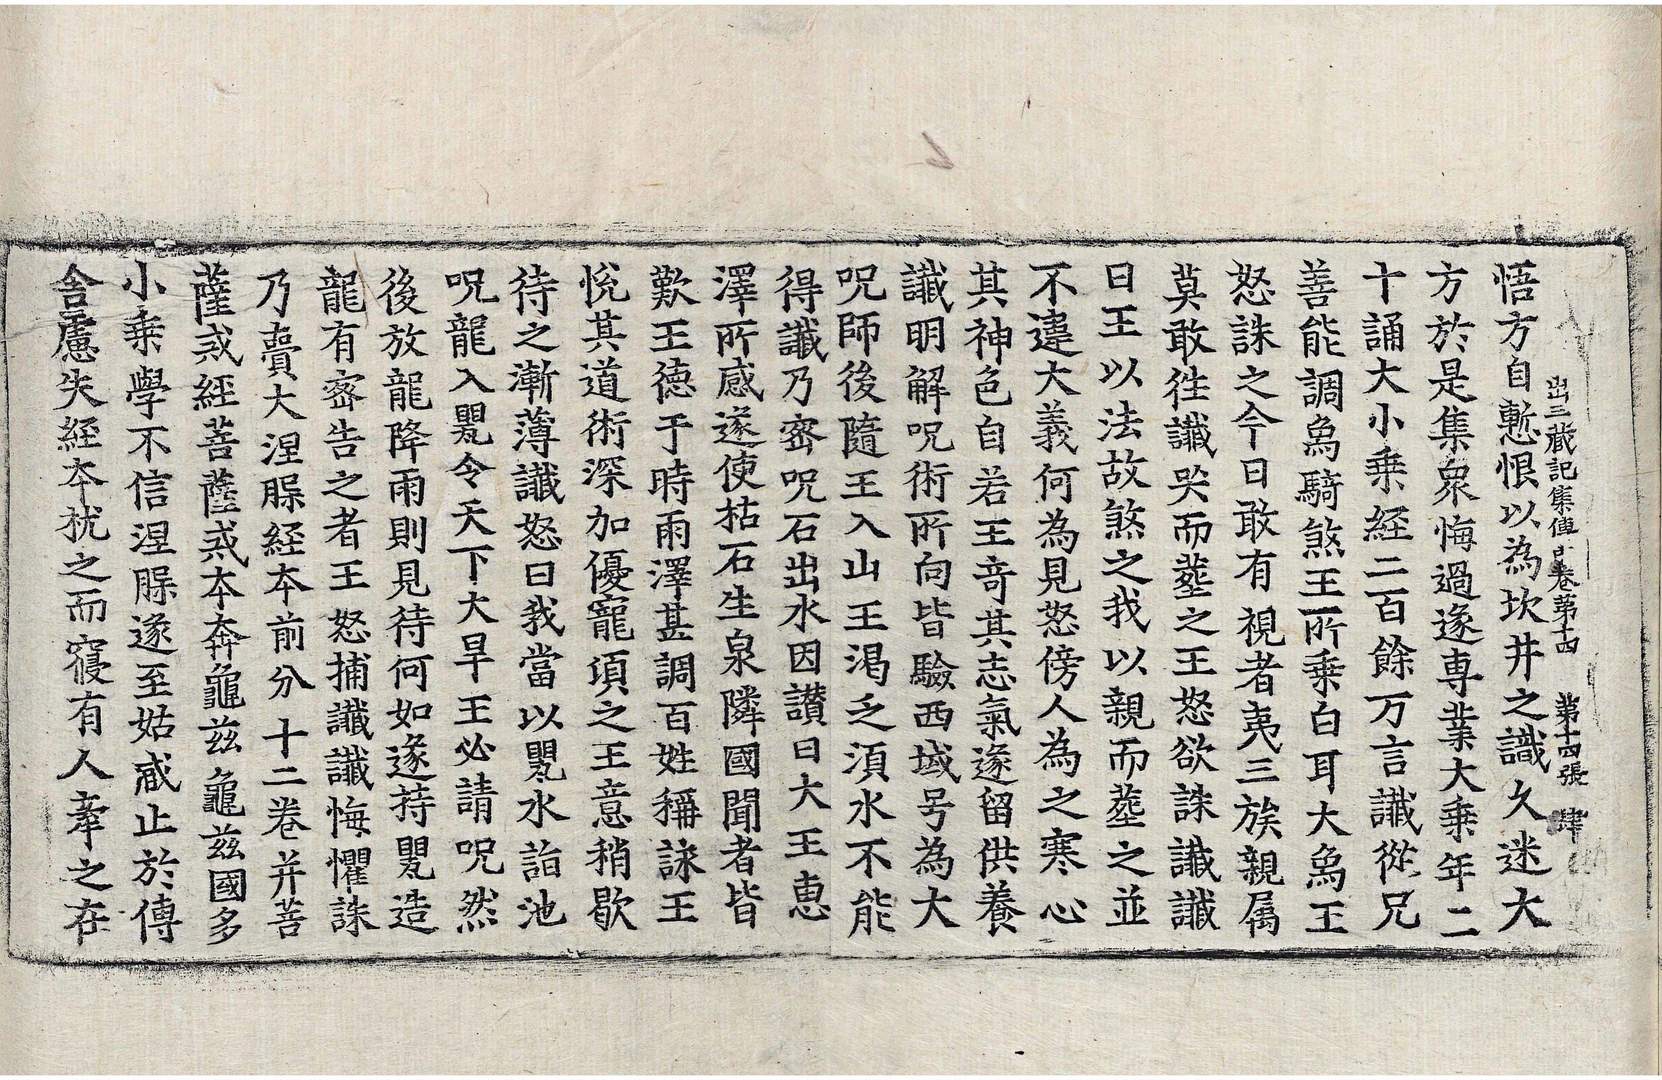 出三藏記集傳中卷第十四 第十四張 肆
悟方自慙恨以為坎井之識久迷大
方於是集衆悔過遂専業大乗年二
十誦大小乗経二百餘万言讖從兄
善能調為騎煞王所乗白耳大為王
怒誅之今日敢有視者夷三族親属
莫敢徃讖哭而塟之王怒欲誅讖讖
曰王以法故煞之我以親而塟之並
不違大義何為見怒傍人為之寒心
其神色自若王竒其志氣遂留供養
讖明解呪術所向皆驗西域号為大
呪師後隨王入山王渇乏湏水不能
得讖乃宻呪石出水因讃曰大王恵
澤所感遂使枯石生泉隣國聞者皆
歎王德于時雨澤甚調百姓稱詠王
恱其道術深加優寵頃之王意稍歇
待之漸薄讖怒曰我當以甖水詣池
呪龍入甖令天下大旱王必請呪然
後放龍降雨則見待何如遂持甖造
龍有宻告之者王怒捕讖讖悔懼誅
乃賷大涅脲経本前分十二巻并菩
薩戒経菩薩戒本奔龜茲龜茲國多
小乗學不信涅脲遂至姑臧止於傳
舎慮失経本枕之而寢有人牽之在